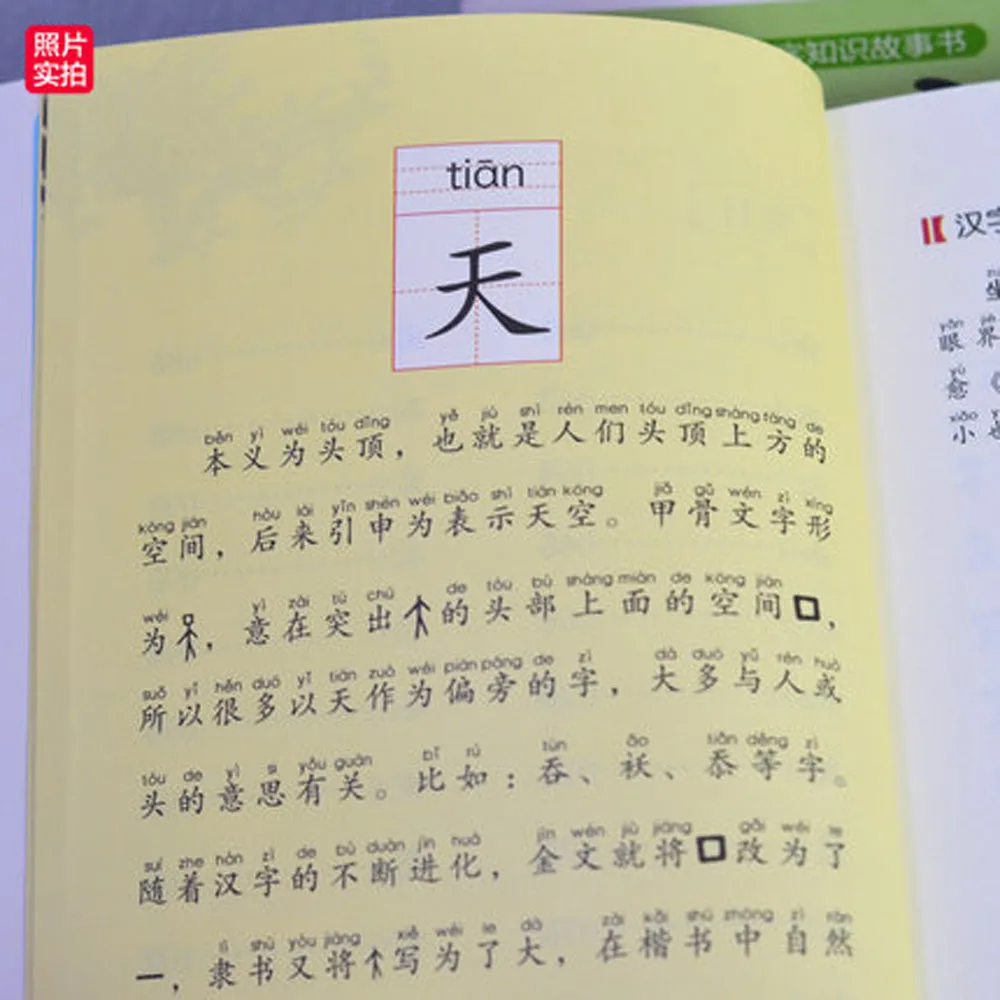 照片
实拍
字知识故事书
tiān
天
běn yì wéi tóu dǐng yě jiù shì rén men tóu dǐng shàng fāng de
本义为头顶，也就是人们头顶上方的
kōng jiān hòu lái yǐn shēn wéi biǎo shì tiān kōng jiǎ gǔ wén zì xíng
空间，后来引申为表示天空。甲骨文字形
wéi yì zài tū chū de tóu bù shàng miàn de kōng jiān
为，意在突出的头部上面的空间，
suǒ yǐ hěn duō yǐ tiān zuò wéi piān páng de zì dà duō yǔ rén huò
所以很多以天作为偏旁的字，大多与人或
tóu de yì si yǒu guān bǐ rú tūn ǎo tiǎn děng zì
头的意思有关。比如：吞、袄、忝等字。
suí zhe hàn zì de bú duàn jìn huà jīn wén jiù jiāng gǎi wéi le
随着汉字的不断进化，金文就将改为了
lì shū yòu jiāng xiě wéi le dà zài kǎi shū zhōng zì rán
一，隶书又将写为了大，在楷书中自然
汉字
yǎn jiè
眼界
yù
愈《
xiǎo
小